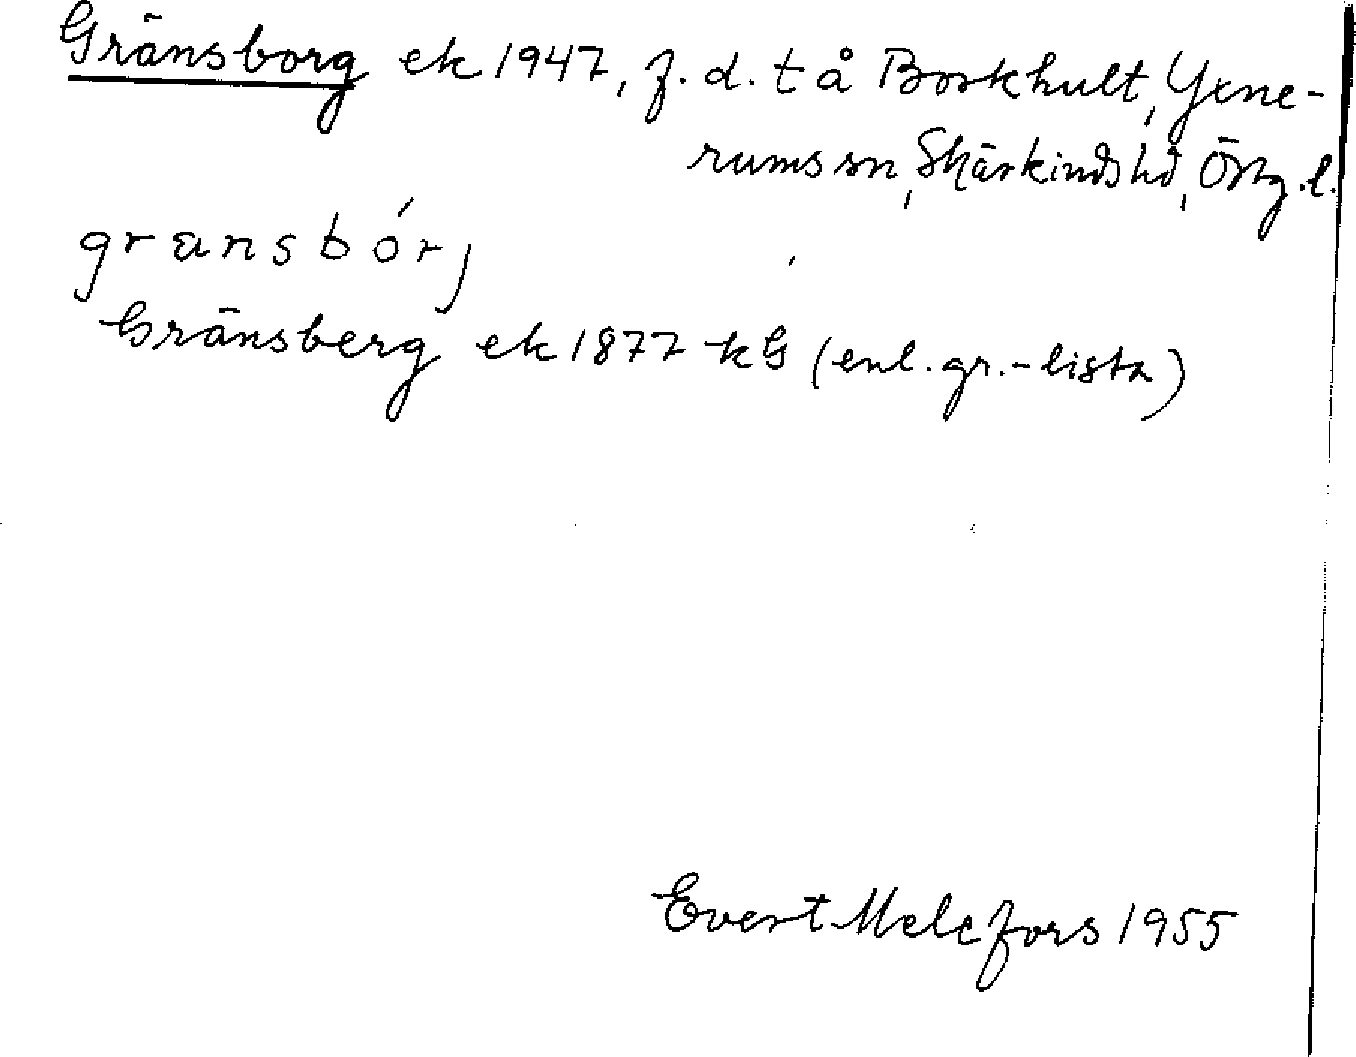 Gränsborg ek 1947, f. d. t å Borkhult, Yxne-
rums sn, Skärkinds hd, Östg. l.
gränsbórj
Gränsberg ek 1877 kG (enl. gr.-lista)
Evert Melefors 1955